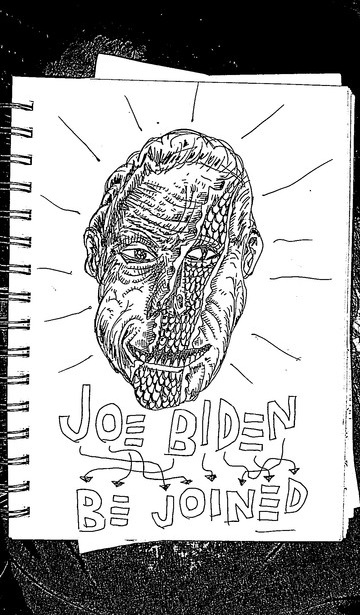 JOE BIDEN
BE JOINED